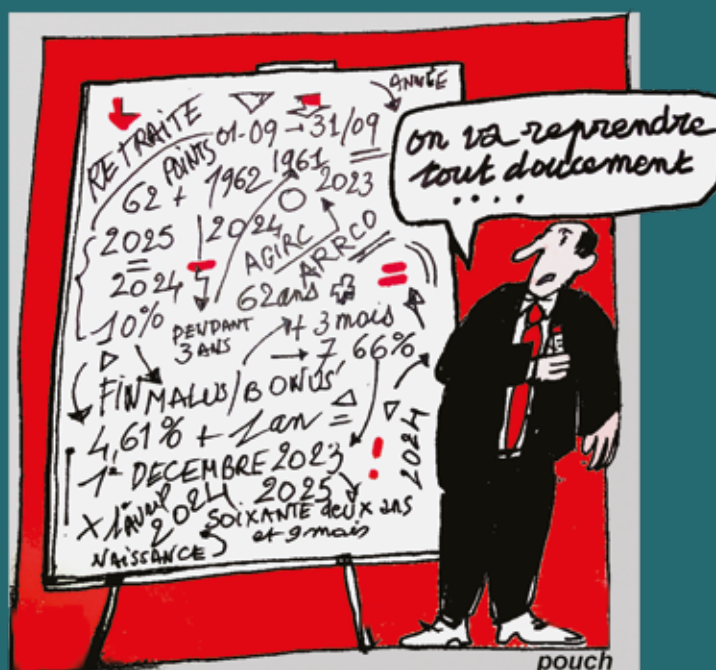 ANNÉE
RETRAITE
POINTS 01-09 → 31/09
62 + 1962 1961
2023
2025 2024
=
2024
AGIRC
ARRCO
62 ans + =
10% PENDANT
3 ANS
+ 3 mois
→ 7,66%
FIN MALUS/BONUS
4,61% + 1 an =
1er DECEMBRE 2023 !
2024
X 1 avril
2024 2025
SOIXANTE deux ans
et 9 mois
NAISSANCE
on va reprendre
tout doucement
....
pouch